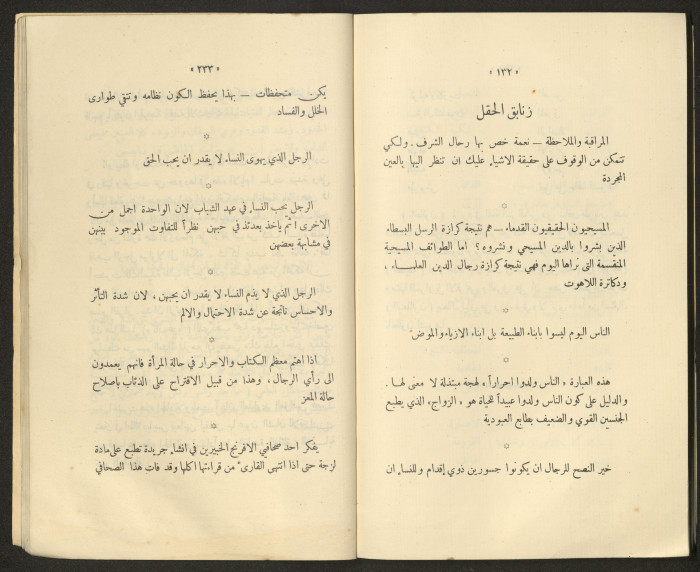 « ١٣٢ »
زنابق الحقل
المراقبة والملاحظة — نعمة خص بها رحال الشرف . ولكي
تتمكن من الوقوف على حقيقة الاشياء عليك ان تنظر اليها بالعين
المجردة
المسيحيون الحقيقيون القدماء — هم نتيجة كرازة الرسل البسطاء
الذين بشروا بالدين المسيحي ونشروه ؟ اما الطوائف المسيحية
المنقسمة التى نراها اليوم فهي نتيجة كرازة رجال الدين العلماء ،
ودكاترة اللاهوت
الناس اليوم ليسوا بابناء الطبيعة بل ابناء الازياء والموض
هذه العبارة « الناس ولدوا احراراً » لهجة مبتذلة لا معنى لها .
والدليل على كون الناس ولدوا عبيداً للحياة هو « الزواج » الذي يطبع
الجنسين القوي والضعيف بطابع العبودية
خير النصح للرجال ان يكونوا جسورين ذوي إقدام وللنساء ان
« ٢٣٣ »
يكن متحفظات — بهذا يحفظ الكون نظامه وتنقي طوارى
الخلل والفساد
الرجل الذي يهوى النساء لا يقدر ان يحب الحق
الرجل يحب النساء في عهد الشباب لان الواحدة اجمل من
الاخرى ثم يأخذ بعدئذ في حبهن نظراً للتفاوت الموجود بينهن
في مشابهة بعضهن
الرجل الذي لا يذم النساء لا يقدر ان يحبهن ، لان شدة التأثر
والاحساس ناتجة عن شدة الاحتمال والالم
اذا اهتم معظم الكتاب والاحرار في حالة المرأة فانهم يعمدون
الى رأي الرجال ، وهذا من قبيل الاقتراح على الذئاب باصلاح
حالة المعز
يفكر احد صحافي الافرنج الخبيرين في انشاء جريدة تطبع على مادة
لزجة حتى اذا انتهى القارئ من قراءتها اكلها وقد فات هذا الصحافي